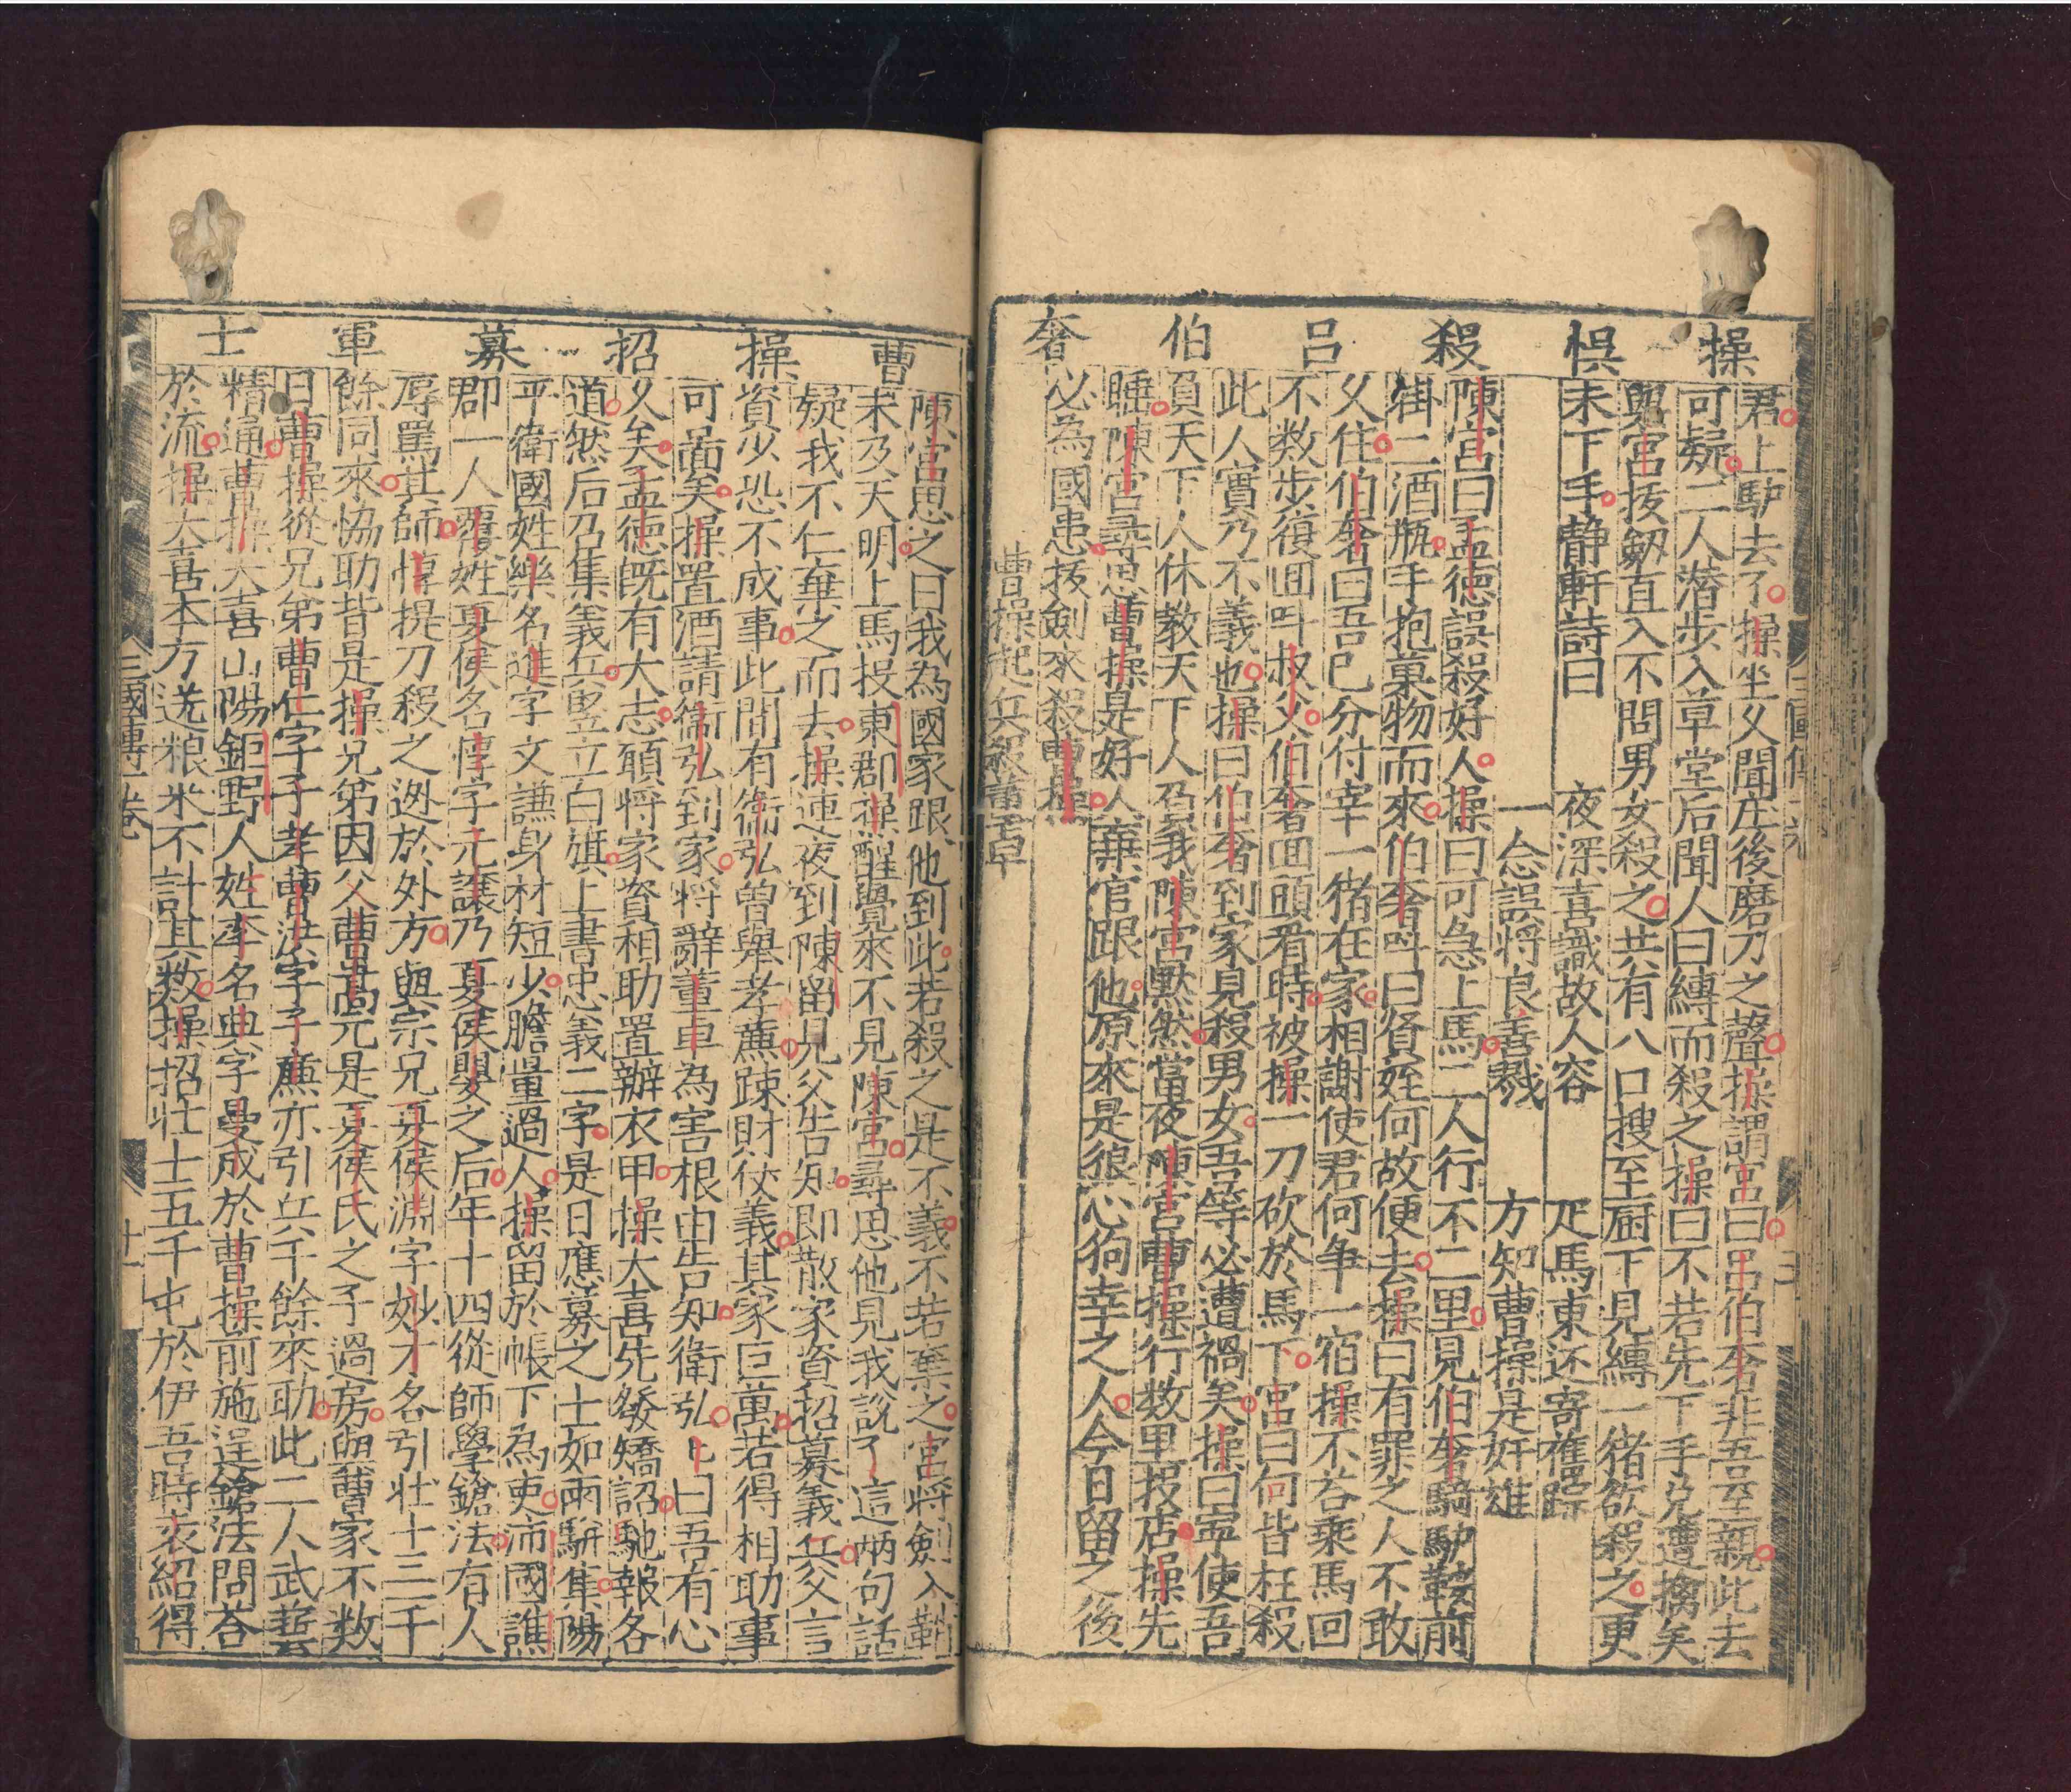 操悞殺呂伯奢
君上馿去了操坐乆聞庄後磨刀之聲操謂宮曰呂伯奢非吾至親此去
可疑二人潜步入草堂后聞人曰縛而殺之操曰不若先下手免遭擒矣
與宮拔劔直入不問男女殺之共有八口搜至厨下見縛一猪欲殺之更
未下手静軒詩曰 夜深喜識故人容 疋馬東还寄舊踪
一念誤将良善戮 方知曹操是奸雄
陳宮曰孟徳誤殺好人操曰可急上馬二人行不二里見伯奢騎馿鞍前
掛二酒瓶手抱菓物而來伯奢呌曰贤姪何故便去操曰有罪之人不敢
乆住伯奢曰吾已分付宰一猪在家相謝使君何争一宿操不荅乘馬回
不数步復回呌叔父伯奢囬頭看時被操一刀砍於馬下宮曰何皆枉殺
此人實乃不義也操曰伯奢到家見殺男女吾等必遭禍矣操曰寕使吾
負天下人休教天下人負我陳宮默然當夜陳宮曹操行数里投店操先
睡陳宮尋思曹操是好人棄官跟他原來是狼心狗幸之人今日留之後
必為國患拔劍來殺曹操
曹操起兵殺董卓
三國傳一卷
曹操招募軍士
陳宮思之曰我為國家跟他到此若殺之是不義不若棄之宮将劍入鞘
未及天明上馬投東郡操醒覺來不見陳宮尋思他見我說了這两句話
疑我不仁棄之而去操連夜到陳留見父告知即散家資招募義兵父言
資少恐不成事此間有衛弘曾舉孝薦踈財仗義其家巨萬若得相助事
可畵矣操置酒請衛弘到家将辭董卓為害根由告知衛弘匕曰吾有心
乆矣孟徳旣有大志願将家資相助置辦衣甲操大喜先發矯詔馳報各
道然后召集義兵竪立白旗上書忠義二字是日應募之士如雨駢集陽
平衛國姓樂名進字文謙身材短少膽量過人操留於帳下為吏沛國譙
郡一人覆姓夏侯名惇字元讓乃夏侯嬰之后年十四從師學鎗法有人
辱罵其師惇提刀殺之迯於外方與宗兄夏侯淵字妙才名引壮士三千
餘同來協助皆是操兄弟因父曹嵩元是夏侯氏之子過房與曹家不数
日曹操從兄弟曹仁字子孝曹洪字子廉亦引兵千餘來助此二人武藝
精通曹操大喜山陽鉅野人姓李名典字曼成於曹操前施逞鎗法問荅
於流操大喜本方送粮米不計其数操招壮士五千屯於伊吾時袁紹得
三國傳一卷
十一